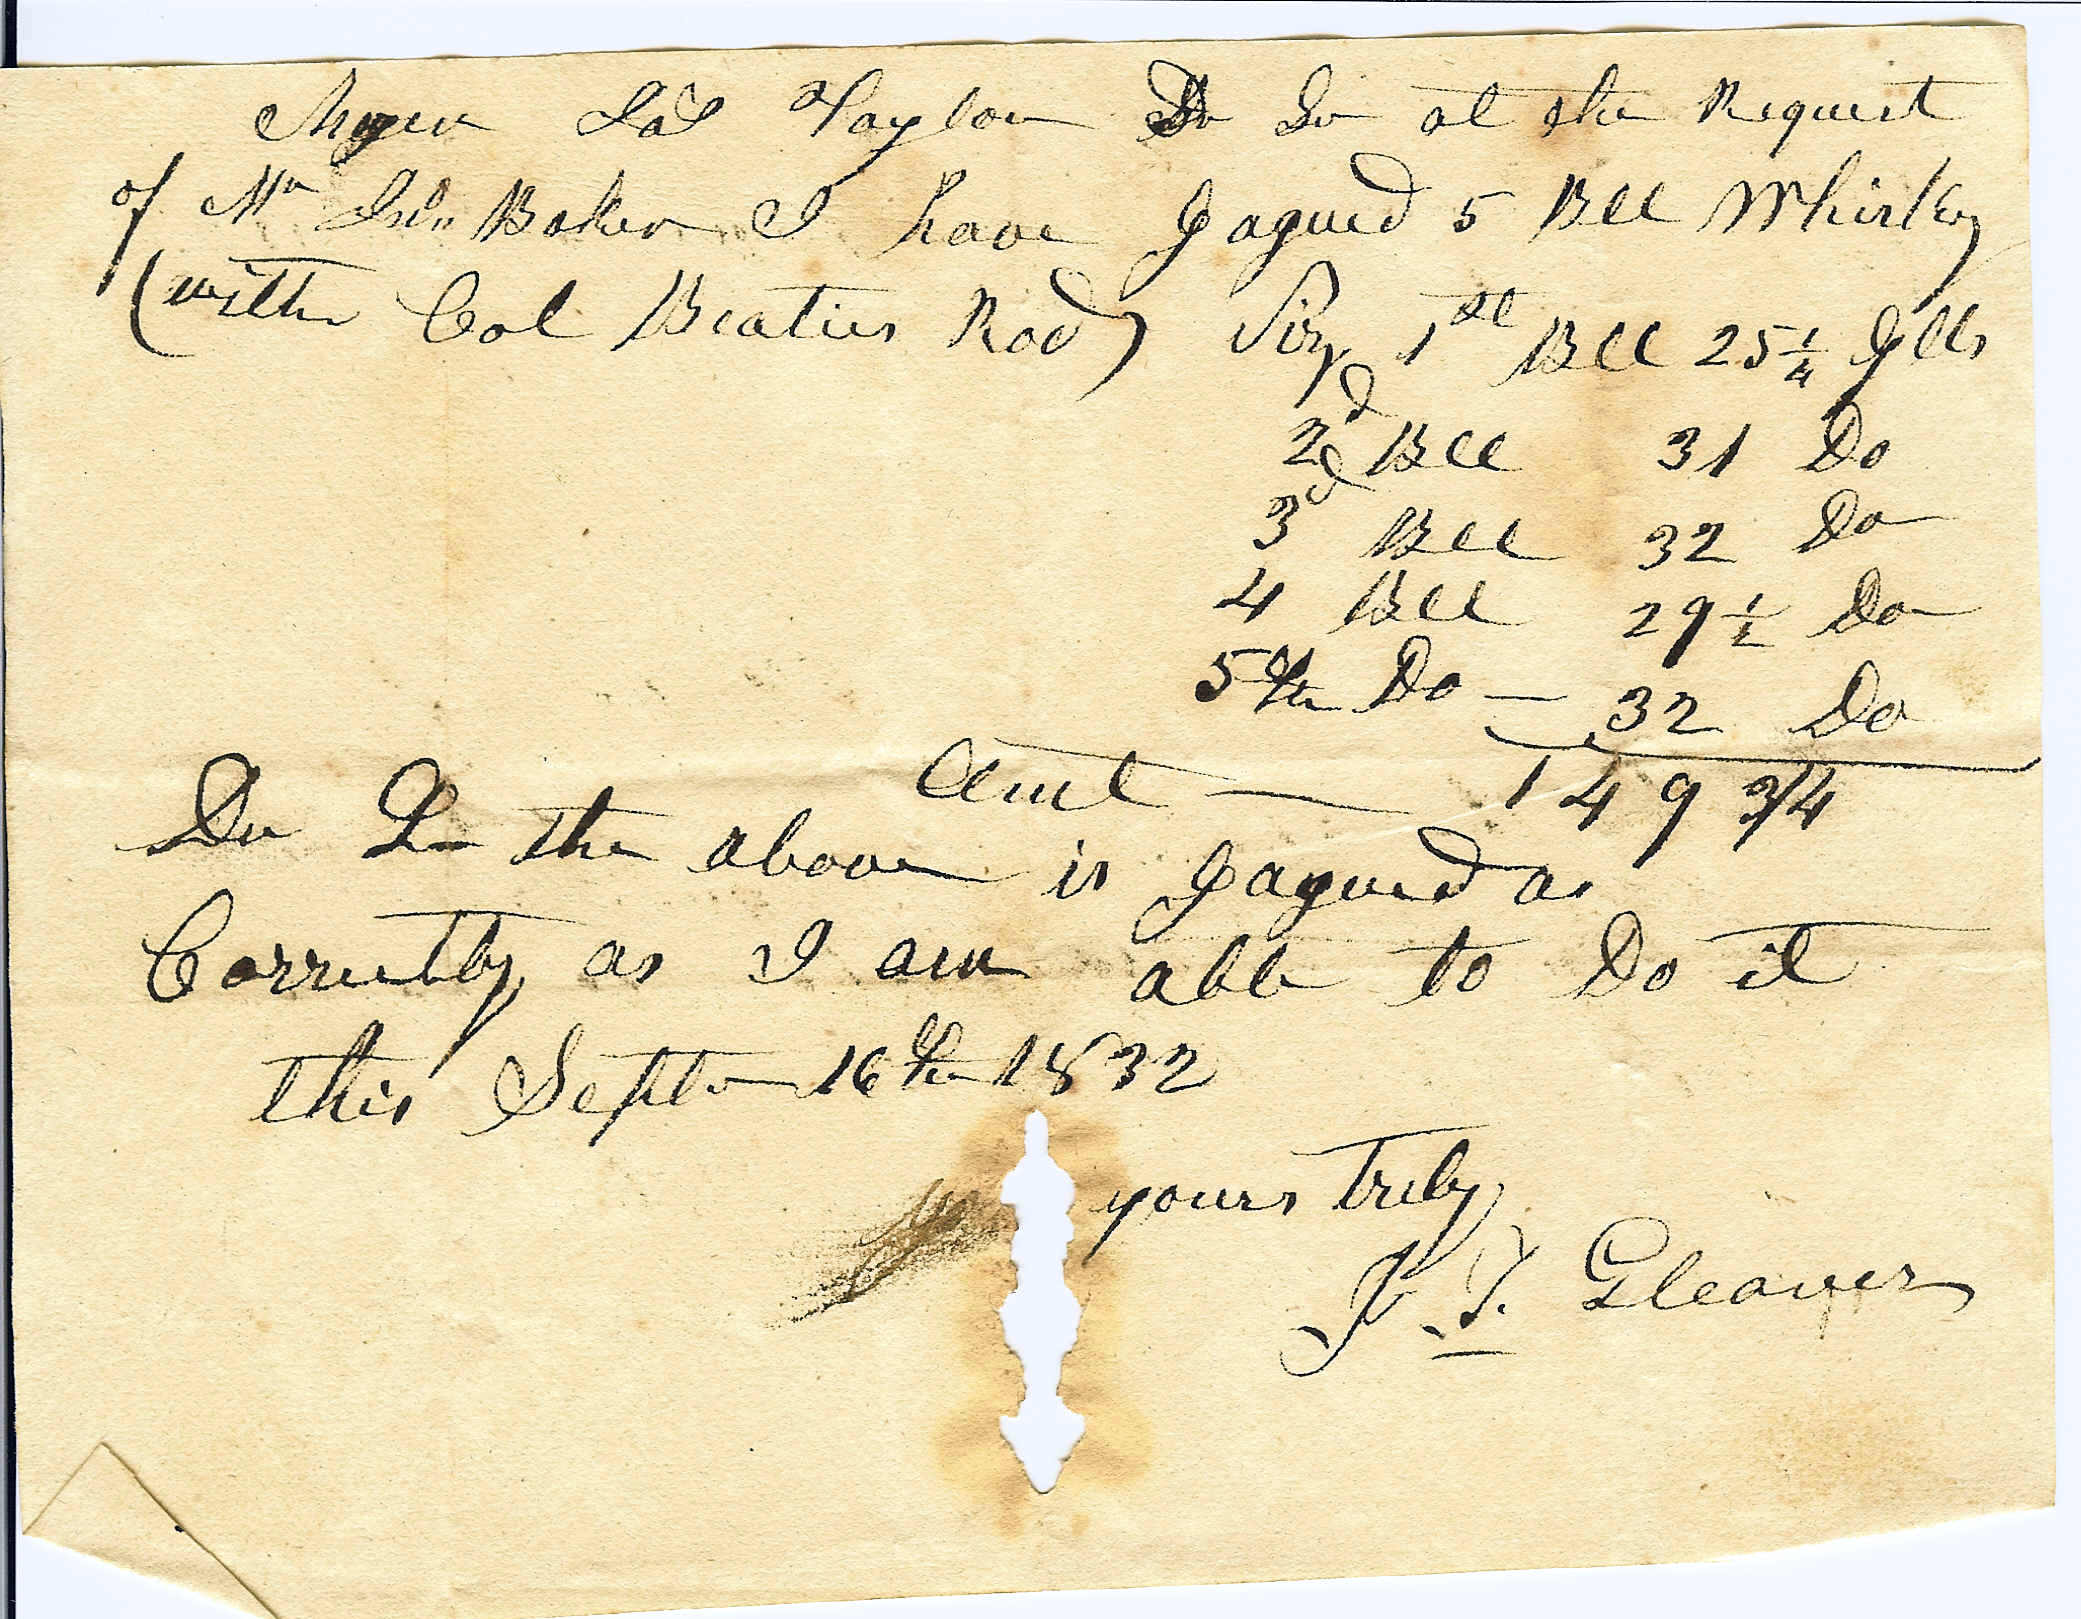 Majer Jas Taylor Dr Sir at the Request
of Mr Jno Baker I have Gagued 5 Bll Whiskey
(with Col Beaties Rod) Viz 1st Bll 25 1/4 Glls
2d Bll 31 Do
3d Bll 32 Do
4 Bll 29 1/2 Do
5th Do — 32 Do
Amt — 149 3/4
Dr Sr the above is Gagued as
Correctly as I am able to Do it
this Septr 16th 1832
yours truly
J. T. Gleaves